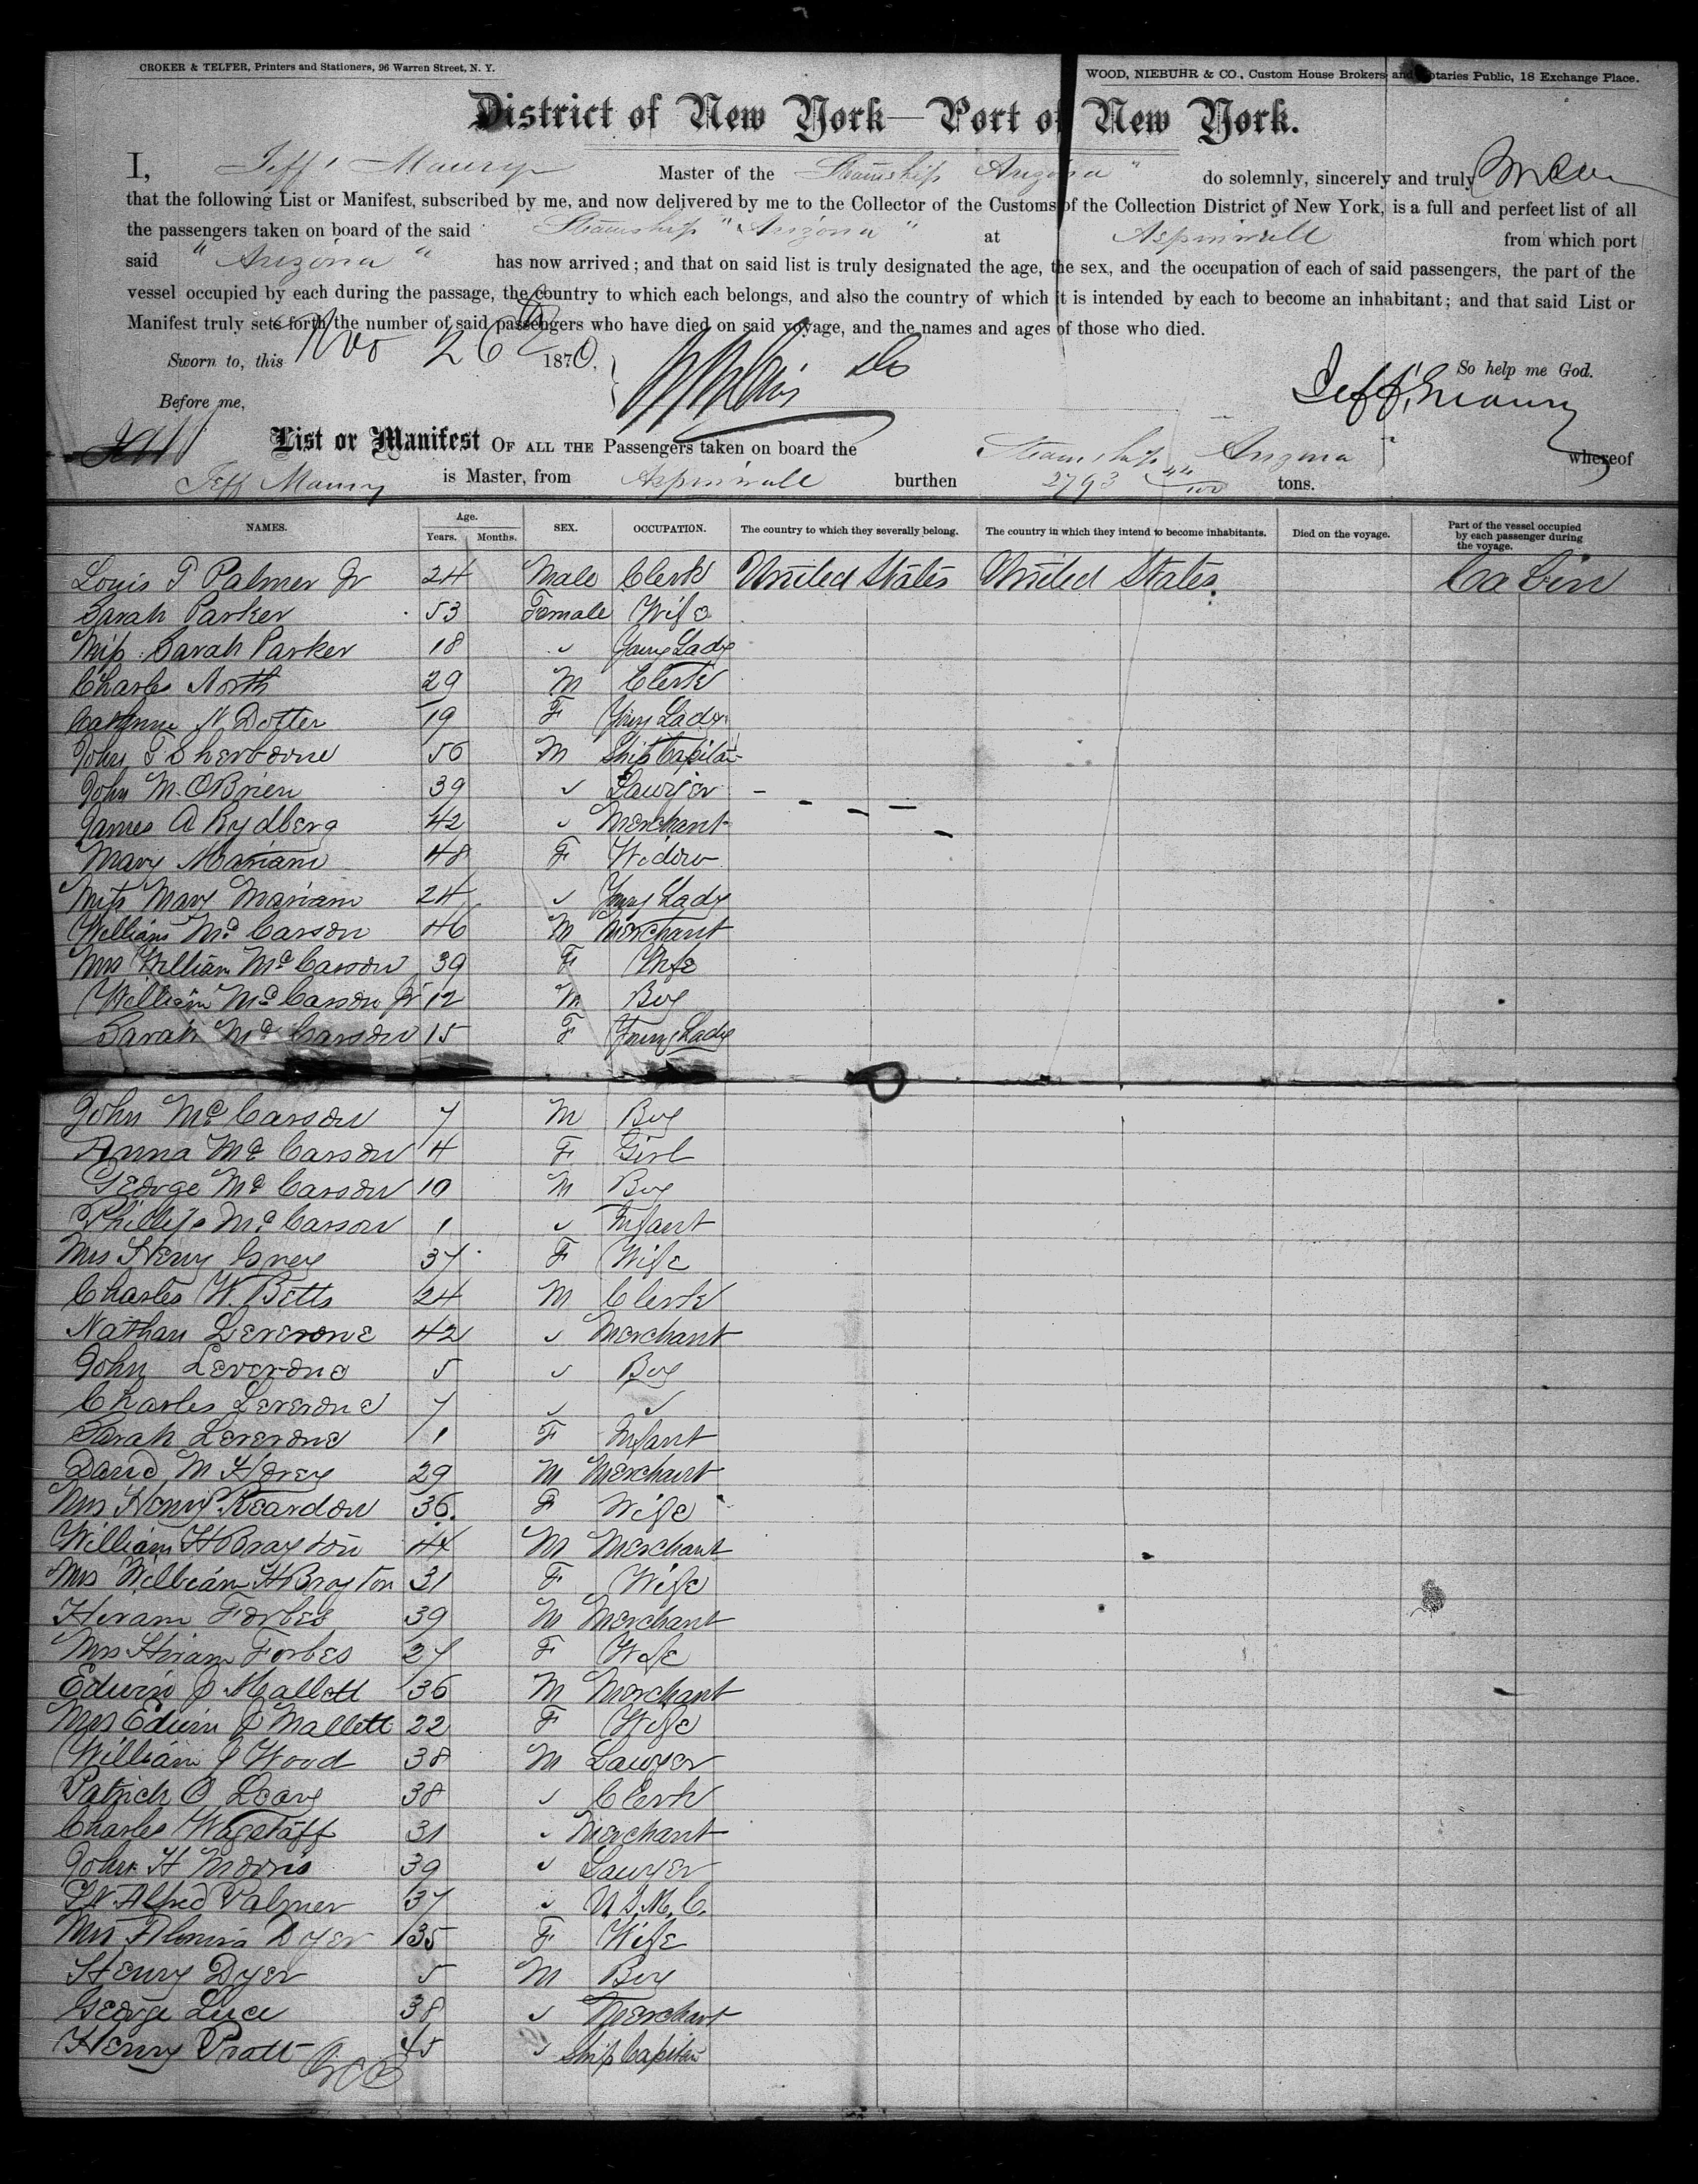 CROKER & TELFER, Printers and Stationers, 96 Warren Street, N. Y.
WOOD, NIEBUHR & CO., Custom House Brokers and Notaries Public, 18 Exchange Place.
District of New York—Port of New York.
I, Jeff Maury Master of the Steamship Arizona" do solemnly, sincerely and truly
that the following List or Manifest, subscribed by me, and now delivered by me to the Collector of the Customs of the Collection District of New York, is a full and perfect list of all
the passengers taken on board of the said Steamship "Arizona" at Aspinwall from which port
said "Arizona" has now arrived; and that on said list is truly designated the age, the sex, and the occupation of each of said passengers, the part of the
vessel occupied by each during the passage, the country to which each belongs, and also the country of which it is intended by each to become an inhabitant; and that said List or
Manifest truly sets forth the number of said passengers who have died on said voyage, and the names and ages of those who died.
Sworn to, this Nov 26 1870.
So help me God.
Jeff Maury
Before me,
List or Manifest OF ALL THE Passengers taken on board the Steamship Arizona whereof
Jeff Maury is Master, from Aspinwall burthen 2793 tons.
NAMES. Age. Years. Months. SEX. OCCUPATION. The country to which they severally belong. The country in which they intend to become inhabitants. Died on the voyage. Part of the vessel occupied by each passenger during the voyage.
Louis P Palmer Jr 24 Male Clerk United States United States. Cabin
Sarah Parker 53 Female Wife
Miss Sarah Parker 18 " Young Lady
Charles North 29 M Clerk
N. Dotter 19 F Young Lady
John Sherborne 56 M Ship Capitan
John M. OBrien 39 " Lawyer
James A Rydberg 42 " Merchant
Mary Mariam 48 F Widow
Miss Mary Mariam 24 " Young Lady
William Mc Carson 46 M Merchant
Mrs William Mc Carson 39 F Wife
William Mc Carson Jr 12 M Boy
Sarah Mc Carson 15 F Young Lady
John Mc Carson 7 M Boy
Anna Mc Carson 4 F Girl
George Mc Carson 10 M Boy
Phillip Mc Carson 1 " Infant
Mrs Henry Grey 37 F Wife
Charles W. Betts 24 M Clerk
Nathan Leverone 42 " Merchant
John Leverone 5 " Boy
Charles Leverone 7 " "
Sarah Leverone 1 F Infant
David M 29 M Merchant
Mrs Henry Reardon 36. F Wife
William H Brayton 44 M Merchant
Mrs William H Brayton 31 F Wife
Hiram Forbes 39 M Merchant
Mrs Hiram Forbes 27 F Wife
Edwin J Mallett 36 M Merchant
Mrs Edwin J Mallett 22 F Wife
William J Wood 38 M Lawyer
Patrick O Leary 38 " Clerk
Charles Wagstaff 31 " Merchant
John H Morris 39 " Lawyer
Alfred Palmer 37 " U.S.M.C.
Mrs Dyer 35 F Wife
Henry Dyer 5 M Boy
George Luce 38 " Merchant
Henry Pratt 45 " Ship Capitan